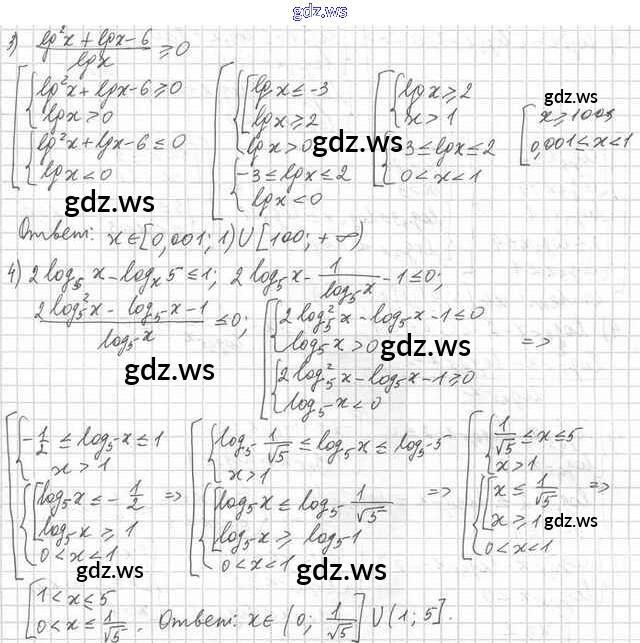 gdz.ws
3) (lg²x + lgx - 6)/lgx ≥ 0
[ { lg²x + lgx - 6 ≥ 0 ; lgx > 0 ; { lg²x + lgx - 6 ≤ 0 ; lgx < 0
[ { [ lgx ≤ -3 ; lgx ≥ 2 ; lgx > 0 ; { -3 ≤ lgx ≤ 2 ; lgx < 0
[ { lgx ≥ 2 ; x > 1 ; { -3 ≤ lgx ≤ 2 ; 0 < x < 1
[ x ≥ 100; 0,001 ≤ x < 1
gdz.ws
gdz.ws
gdz.ws
gdz.ws
Ответ: x ∈ [0,001; 1) ∪ [100; +∞)
4) 2 log₅ x - logₓ 5 ≤ 1; 2 log₅ x - 1/log₅ x - 1 ≤ 0;
(2 log₅² x - log₅ x - 1)/log₅ x ≤ 0; [ { 2 log₅² x - log₅ x - 1 ≤ 0 ; log₅ x > 0 ; { 2 log₅² x - log₅ x - 1 ≥ 0 ; log₅ x < 0 =>
gdz.ws
gdz.ws
[ { -1/2 ≤ log₅ x ≤ 1 ; x > 1 ; { [ log₅ x ≤ -1/2 ; log₅ x ≥ 1 ; 0 < x < 1 =>
[ { log₅ 1/√5 ≤ log₅ x ≤ log₅ 5 ; x > 1 ; { [ log₅ x ≤ log₅ 1/√5 ; log₅ x ≥ log₅ 1 ; 0 < x < 1 =>
[ { 1/√5 ≤ x ≤ 5 ; x > 1 ; { [ x ≤ 1/√5 ; x ≥ 1 ; 0 < x < 1 =>
gdz.ws
gdz.ws
gdz.ws
[ 1 < x ≤ 5 ; 0 < x ≤ 1/√5. Ответ: x ∈ (0; 1/√5] ∪ (1; 5].
gdz.ws